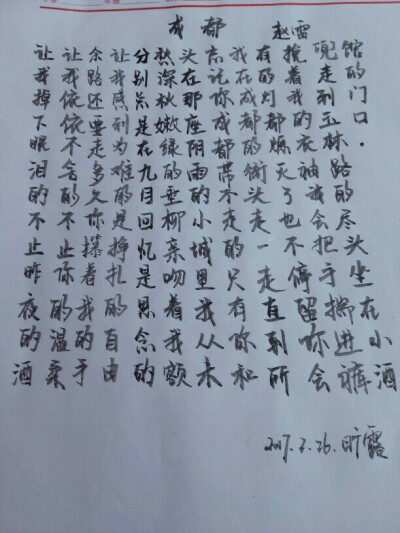 成都
赵雷
让我掉下眼泪的不止昨夜的酒
让我依依不舍的不止你的温柔
余路还要走多久你攥着我的手
让我感到为难的是挣扎的自由
分别总是在九月回忆是思念的
愁深秋嫩绿的垂柳亲吻着我额
头在那座阴雨的小城里我从未
忘记你成都带不走的只有你和
我在成都的街头走一走直到所
有的灯都熄灭了也不停留你会
挽着我的衣袖我会把手揣进裤
兜走到玉林路的尽头坐在小酒
馆的门口.
2017.2.26.